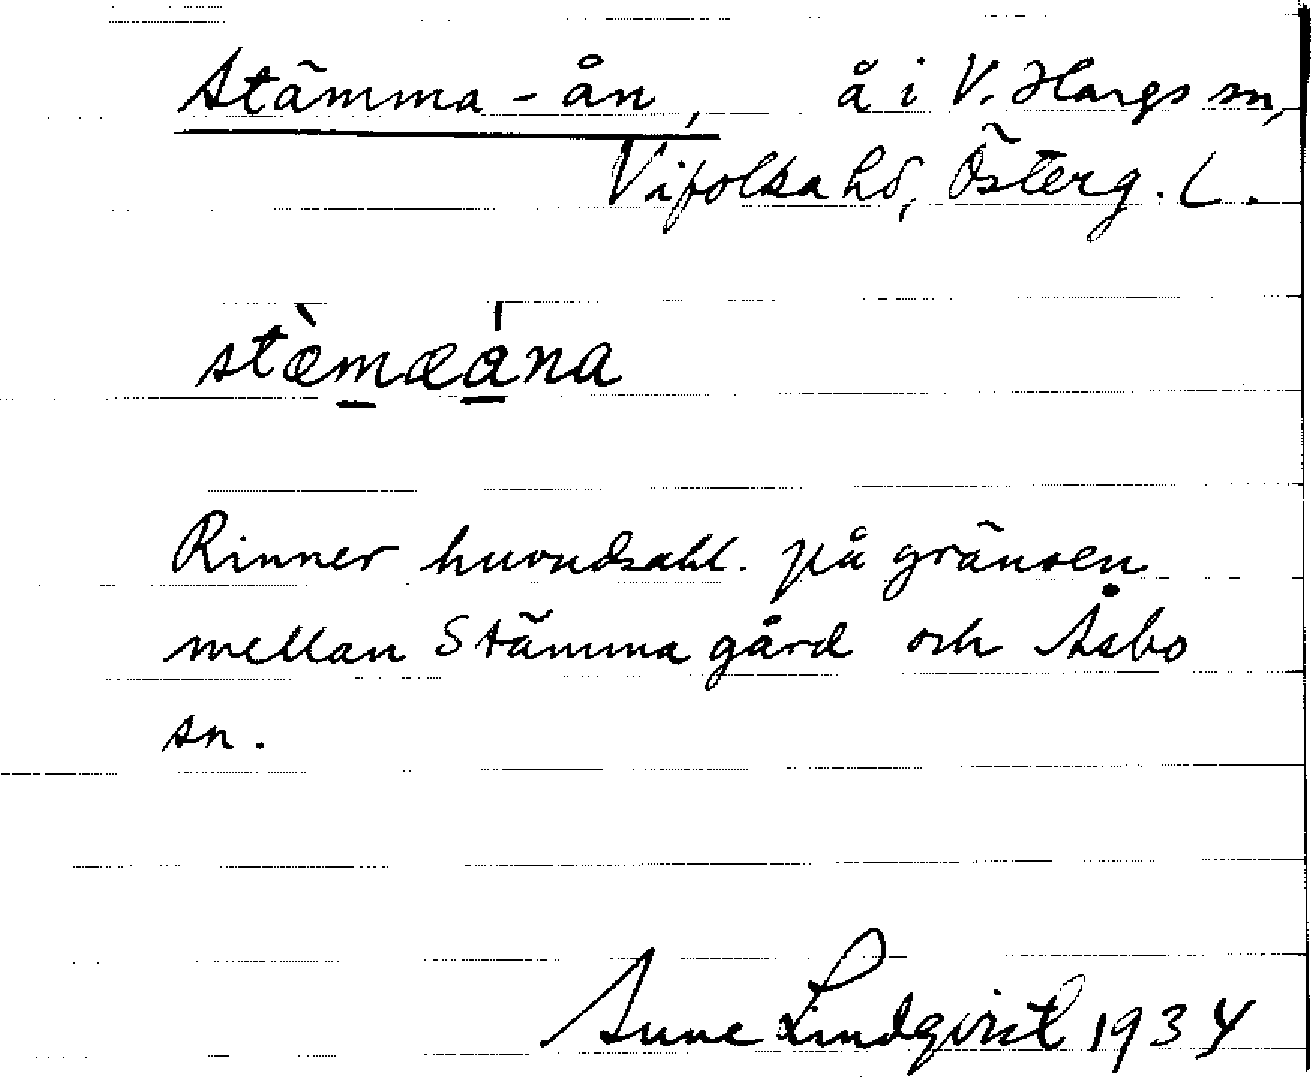 Stämma-ån, å i V. Hargs sn,
Vifolka hd, Österg. L.
stæ̀mæána
Rinner huvudsakl. på gränsen
mellan Stämma gård och Åsbo
sn.
Sune Lindqvist 1934